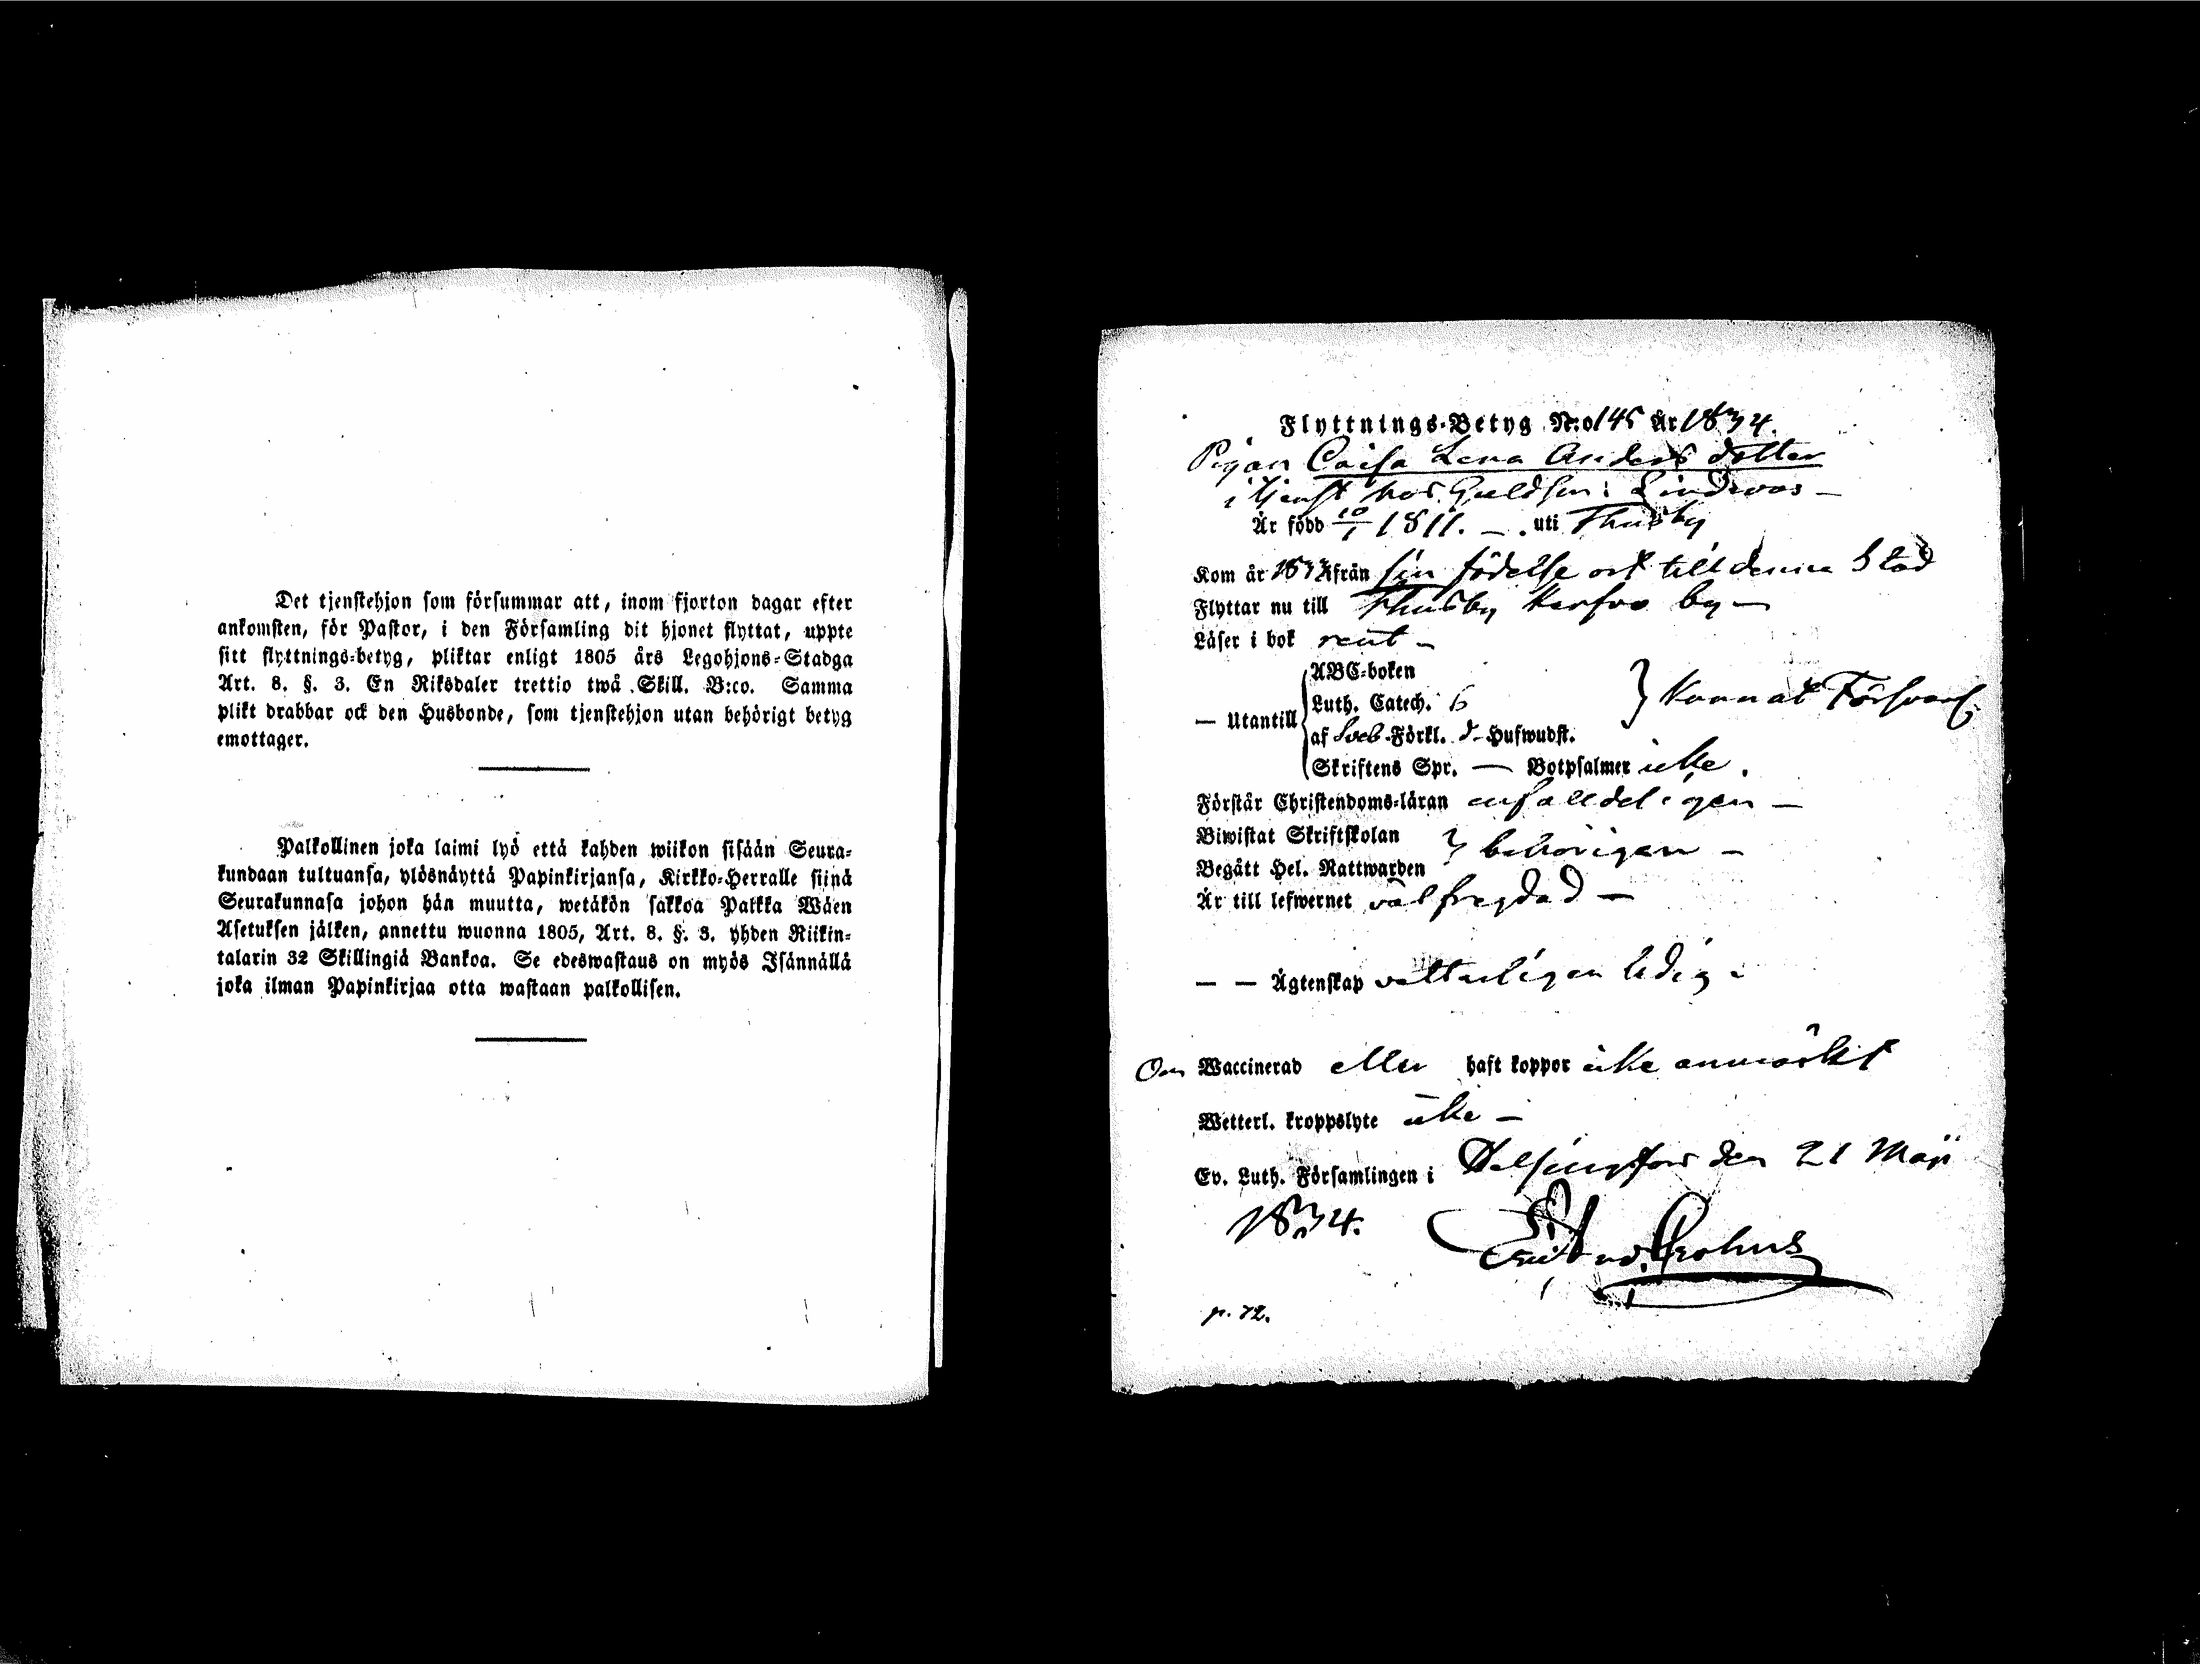 Det tjenstehjon som försummar att, inom fjorton dagar efter
ankomsten, för Pastor, i den Församling dit hjonet flyttat, uppte
sitt flyttnings-betyg, pliktar enligt 1805 års Legohjons-Stadga
Art. 8. §. 3. En Riksdaler trettio twå Skill. B:co. Samma
plikt drabbar ock den Husbonde, som tjenstehjon utan behörigt betyg
emottager.
Palkollinen joka laimi lyö että kahden wiikon sisään Seura-
kundaan tultuansa, ylösnäyttä Papinkirjansa, Kirkko-Herralle siinä
Seurakunnasa johon hän muutta, wetäkön sakkoa Palkka Wäen
Asetuksen jälken, annettu wuonna 1805, Art. 8. §. 3. yhden Riikin-
talarin 32 Skillingiä Bankoa. Se edeswastaus on myös Isännällä
joka ilman Papinkirjaa otta wastaan palkollisen.
Flyttnings-Betyg N:o 145 År 1834.
Pigan Caisa Lena Anders dotter
i tjenst hos Guldsm: Lindroos -
Är född 10/1 1811. - . uti Thusby
Kom år 1833 från sin födelse ort till denna Stad
Flyttar nu till Thusby Kerfvo by -
Läser i bok rent -
ABC-boken
Luth. Catech. 6 } Kunnat Försvarl:
— Utantill
af Sveb. Förkl. 5 Hufwudst.
Skriftens Spr. — Botpsalmer icke.
Förstår Christendoms-läran enfalldeligen -
Biwistat Skriftskolan
} behörigen -
Begått Hel. Nattwarden
Är till lefwernet välfrejdad -
— — Ägtenskap vetterligen ledig -
Om Waccinerad eller haft koppor icke anmärkt
Wetterl. kroppslyte icke -
Ev. Luth. Församlingen i Helsingfors den 21 Maji
1834.
Crohns
p. 72.